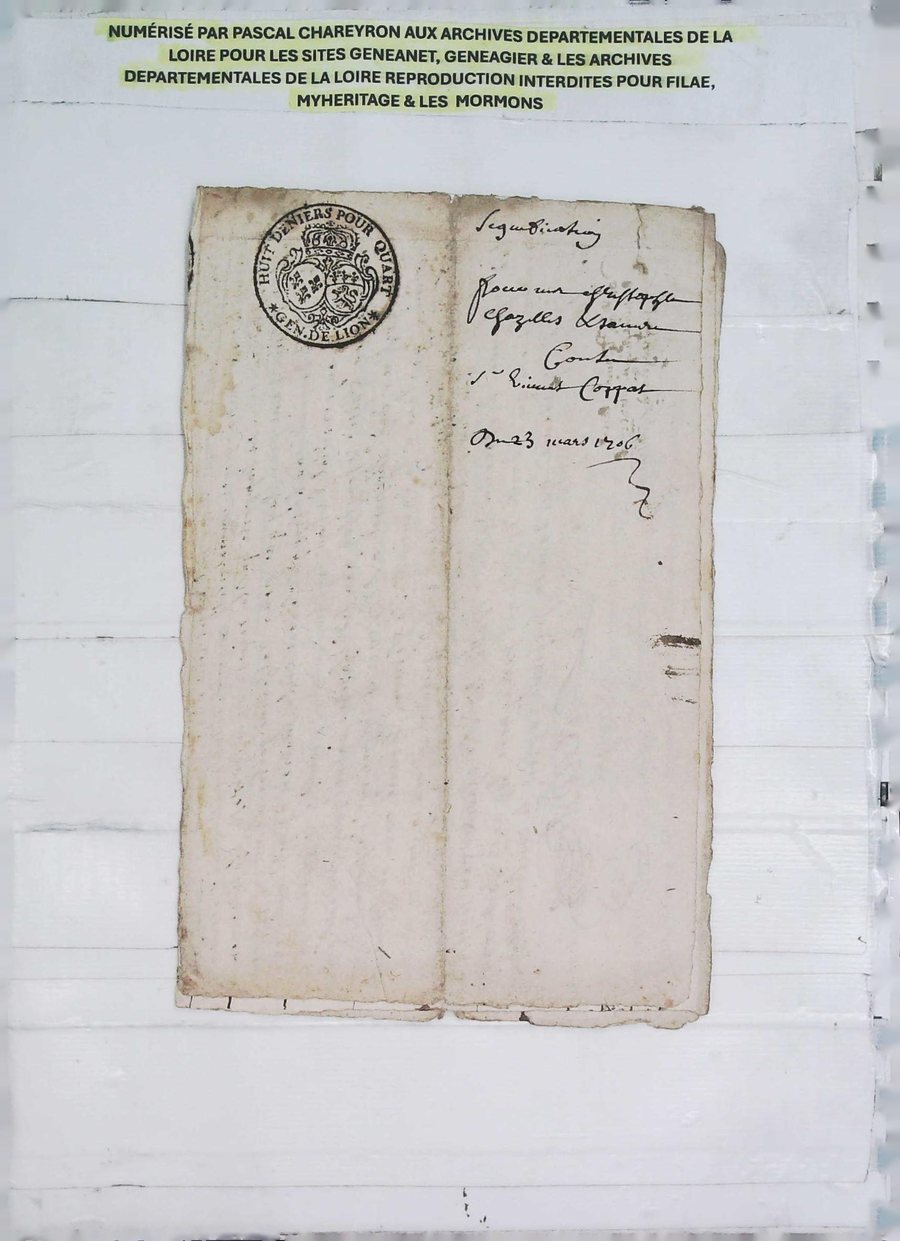 NUMÉRISÉ PAR PASCAL CHAREYRON AUX ARCHIVES DEPARTEMENTALES DE LA
LOIRE POUR LES SITES GENEANET, GENEAGIER & LES ARCHIVES
DEPARTEMENTALES DE LA LOIRE REPRODUCTION INTERDITES POUR FILAE,
MYHERITAGE & LES MORMONS
HUIT DENIERS POUR QUART
*GEN. DE LION*
Signification
Pour christophle
Chazelles
Contre
Sr Coppat
Du 23 mars 1706